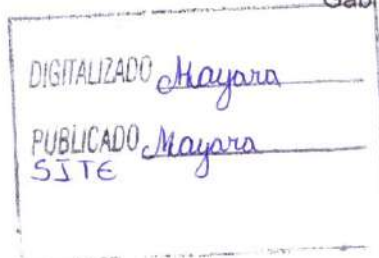 Gabi
DIGITALIZADO Mayara
PUBLICADO Mayara
SITE